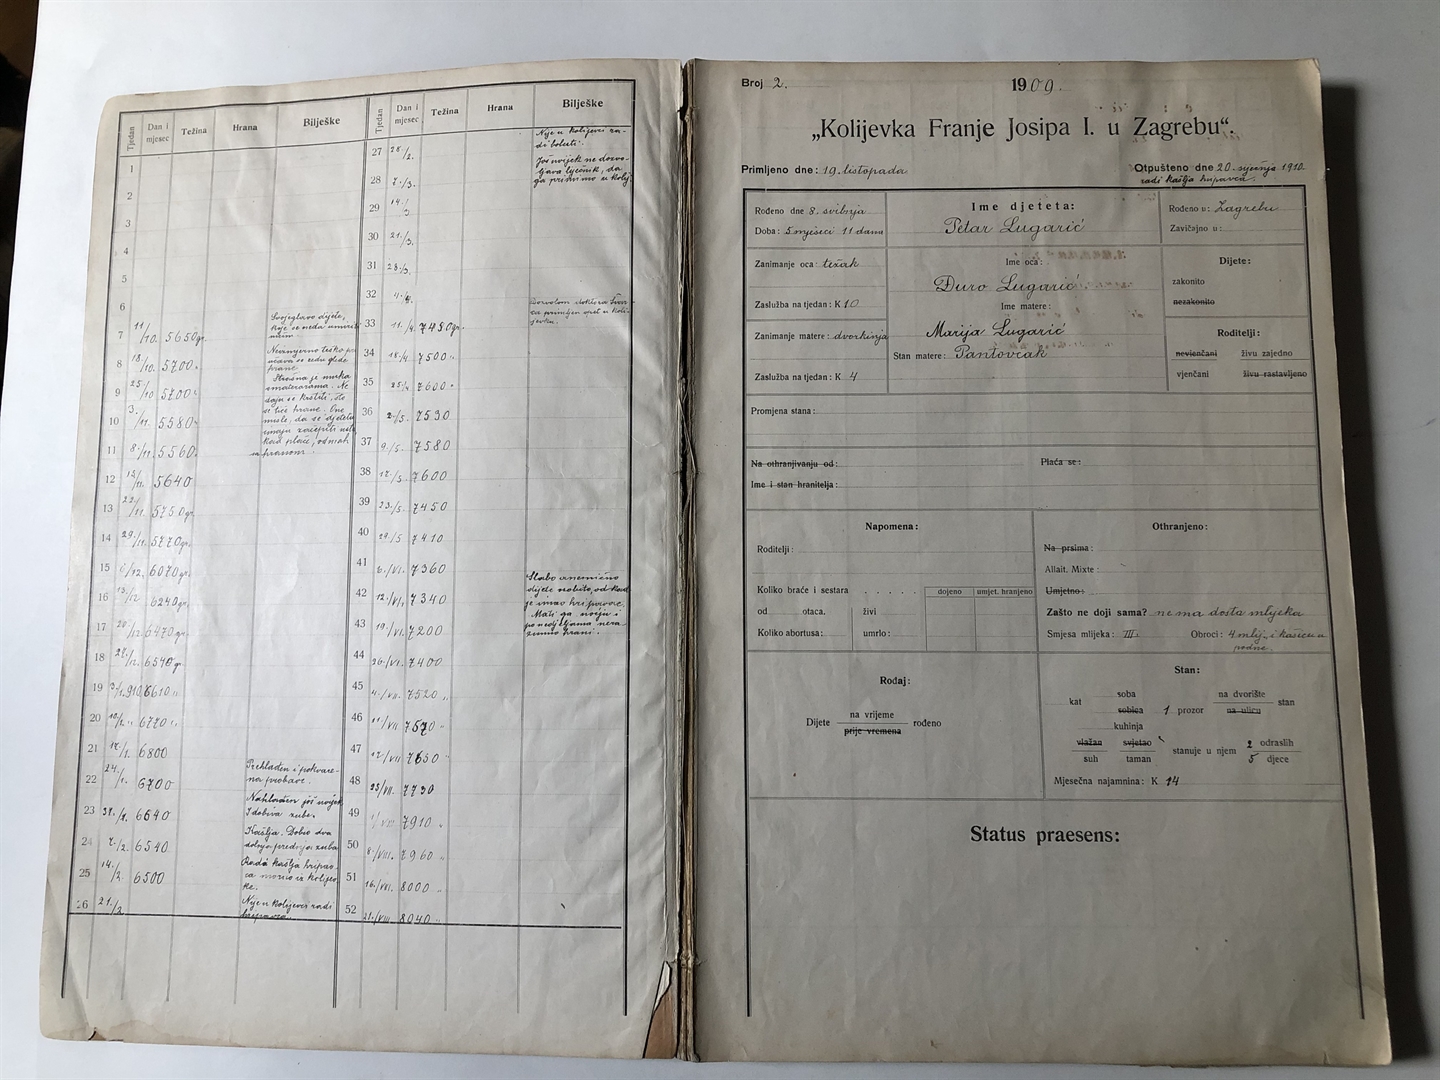 Tjedan Dan i mjesec Težina Hrana Bilješke
1
2
3
4
5
6
7 11/10. 5650gr. Svojeglavo dijete, koje se neda umiriti
8 18./10. 5700. Neizmjerno teško
9 25/10 5700.
10 3./11. 5580
11 8./11. 5560.
12 15/11. 5640
13 22./11 5750gr.
14 29./11. 5770gr.
15 6/12. 6070gr.
16 13./12 6240gr.
17 20/12. 6470gr.
18 28./12. 6540gr
19 3/1.910. 6610 "
20 10/1. " 6770 "
21 17./1. 6800
22 24./1. 6700 Prehlađen i pokvarena probava.
23 31./1. 6640 Nahlađen još uvijek
i dobiva zube.
24 7./2. 6540 Kašlja. Dobio dva
donja prednja zuba
25 14./2. 6500 Radi kašlja hripavca
morao iz kolijevke.
26 21./2. Nije u kolijevci radi
hripavca.
Tjedan Dan i mjesec Težina Hrana Bilješke
27 28/2. Nije u kolijevci radi bolesti.
28 7./3. Još uvijek ne dozvoljava liječnik, da
ga primimo u kolij.
29 14./3
30 21./3.
31 28./3.
32 4./4.
33 11./4. 7450gr.
34 18./4. 7500 "
35 25./4 7600 "
36 2./5. 7530
37 9./5. 7580
38 17./5. 7600
39 23./5. 7450
40 29./5 7410
41 6./VI. 7360
42 12./VI. 7340 Slabo anemično
43 19./VI. 7200
44 26./VI. 7400
45 4./VII. 7520 "
46 11/VII 7570 "
47 17/VII. 7650 "
48 25/VII. 7730
49 1/VIII 7910 "
50 8./VIII. 7960 "
51 16./VIII. 8000 "
52 21./VIII 8040 "
Broj 2. 1909.
„Kolijevka Franje Josipa I. u Zagrebu“.
Primljeno dne: 19. listopada Otpušteno dne 20. siječnja 1910.
radi kašlja hripavca.
Rođeno dne 8. svibnja
Doba: 5 mjeseci 11 dana
Ime djeteta:
Petar Lugarić
Rođeno u: Zagrebu
Zavičajno u:
Zanimanje oca: težak
Zaslužba na tjedan: K 10
Zanimanje matere: dvorkinja
Zaslužba na tjedan: K 4
Ime oca:
Đuro Lugarić
Ime matere:
Marija Lugarić
Stan matere: Pantovčak
Dijete:
zakonito
nezakonito
Roditelji:
nevjenčani živu zajedno
vjenčani živu rastavljeno
Promjena stana:
Na othranjivanju od: Plaća se:
Ime i stan hranitelja:
Napomena:
Roditelji:
Koliko braće i sestara . . . . . dojeno umjet. hranjeno
od otaca, živi
Koliko abortusa: umrlo:
Othranjeno:
Na prsima:
Allait. Mixte:
Umjetno:
Zašto ne doji sama? nema dosta mlijeka
Smjesa mlijeka: III. Obroci: 4 mlij. i kašicu u
podne.
Rođaj:
Dijete na vrijeme rođeno
prije vremena
Stan:
kat soba 1 prozor na dvorište stan
sobica na ulicu
kuhinja
vlažan svjetao stanuje u njem 2 odraslih
suh taman 5 djece
Mjesečna najamnina: K 14
Status praesens: